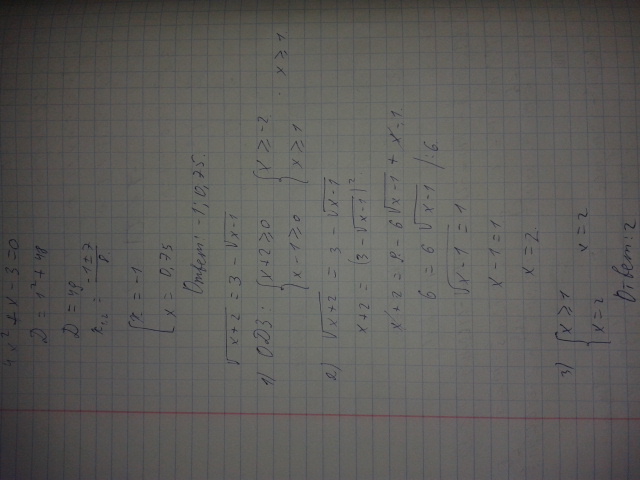 4x² + x - 3 = 0
D = 1² + 48
D = 49
x₁,₂ = (-1 ± 7)/8
[x = -1
[x = 0,75
Ответ: -1; 0,75.
√(x+2) = 3 - √(x-1)
1) ОДЗ: {x+2≥0 {x≥-2
{x-1≥0 {x≥1 . x≥1
2) √(x+2) = 3 - √(x-1)
x+2 = (3 - √(x-1))²
x+2 = 9 - 6√(x-1) + x-1
6 = 6√(x-1) /:6
√(x-1) = 1
x-1=1
x=2.
3) {x≥1
{x=2 x=2
Ответ: 2